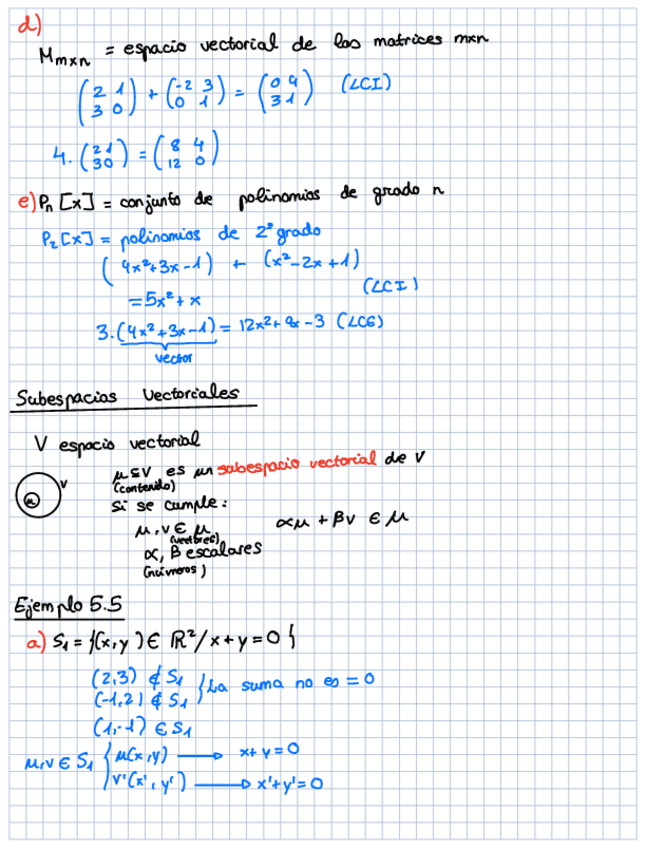 d)
M m×n = espacio vectorial de las matrices m×n
(2 1) + (-2 3) = (0 4) (LCI)
(3 0) (0 1) (3 1)
4. (2 1) = (8 4)
(3 0) (12 0)
e) Pn [x] = conjunto de polinomios de grado n
P2 [x] = polinomios de 2º grado
(4x²+3x-1) + (x²-2x+1)
(LCI)
= 5x²+x
3.(4x²+3x-1) = 12x²+9x-3 (LCG)
vector
Subespacios Vectoriales
V espacio vectorial
V μ⊆V es un subespacio vectorial de V
(contenido)
μ si se cumple:
μ,v ∈ μ αμ + βv ∈ μ
(vectores)
α, β escalares
(números)
Ejemplo 5.5
a) S1 = {(x,y) ∈ ℝ²/x+y=0}
(2,3) ∉ S1
(-1,2) ∉ S1 } La suma no es = 0
(1,-1) ∈ S1
μ,v ∈ S1 { μ(x,y) → x+y=0
v'(x',y') → x'+y'=0